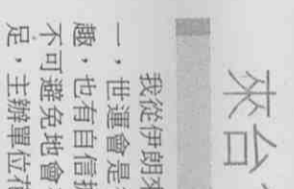 來台
我從伊朗來
一，世運會是
趣，也有自信
不可避免地會
足，主辦單位